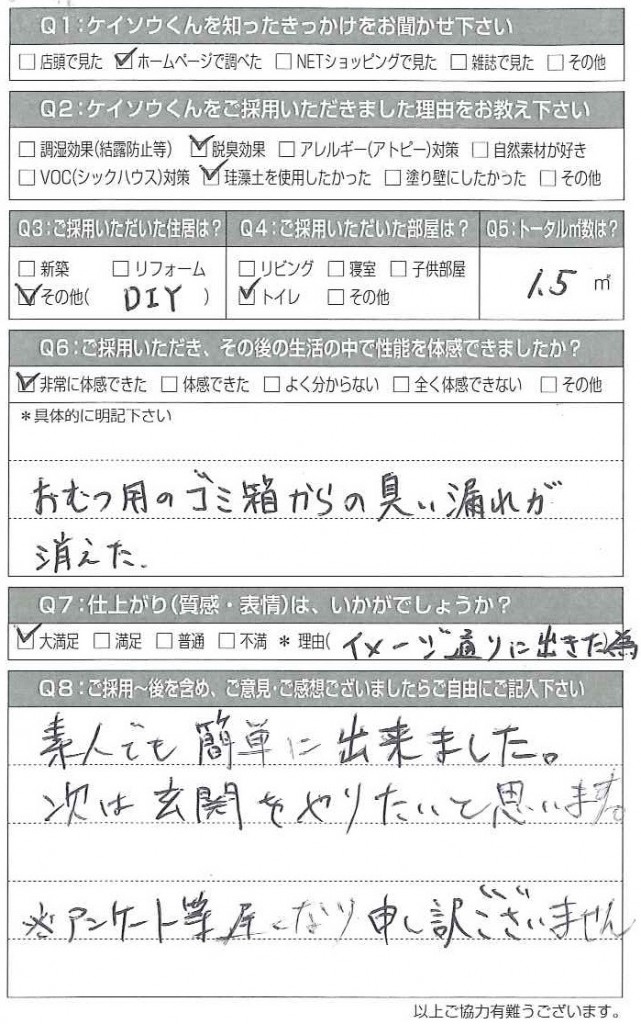 Q1:ケイソウくんを知ったきっかけをお聞かせ下さい
□店頭で見た ☑ホームページで調べた □NETショッピングで見た □雑誌で見た □その他
Q2:ケイソウくんをご採用いただきました理由をお教え下さい
□調湿効果(結露防止等) ☑脱臭効果 □アレルギー(アトピー)対策 □自然素材が好き
□VOC(シックハウス)対策 ☑珪藻土を使用したかった □塗り壁にしたかった □その他
Q3:ご採用いただいた住居は? Q4:ご採用いただいた部屋は? Q5:トータル㎡数は?
□新築 □リフォーム □リビング □寝室 □子供部屋 1.5 ㎡
☑その他( DIY ) ☑トイレ □その他
Q6:ご採用いただき、その後の生活の中で性能を体感できましたか?
☑非常に体感できた □体感できた □よく分からない □全く体感できない □その他
*具体的に明記下さい
おむつ用のゴミ箱からの臭い漏れが
消えた.
Q7:仕上がり(質感・表情)は、いかがでしょうか?
☑大満足 □満足 □普通 □不満 * 理由( イメージ通りに出きた為
Q8:ご採用〜後を含め、ご意見・ご感想ございましたらご自由にご記入下さい
素人でも簡単に出来ました。
次は玄関をやりたいと思います。
※アンケート等 くなり申し訳ございません
以上ご協力有難うございます。